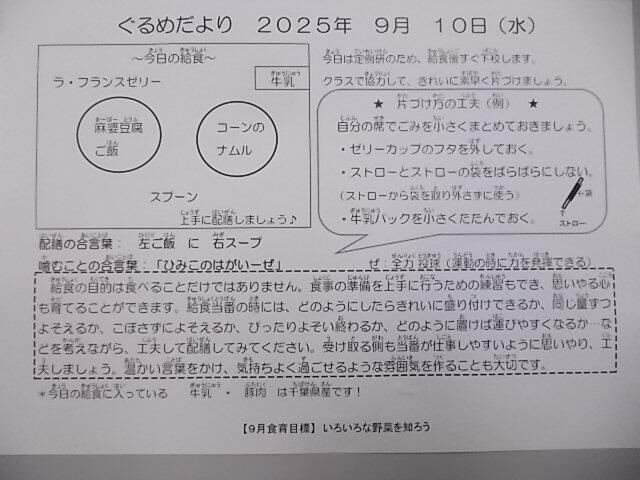 ぐるめだより　２０２５年　９月　１０日（水）
～今日の給食～
ラ・フランスゼリー
牛乳
麻婆豆腐
ご飯
コーンの
ナムル
スプーン
上手に配膳しましょう♪
今日は定例研のため、給食後すぐ下校します。
クラスで協力して、きれいに素早く片づけましょう。
★　片づけ方の工夫（例）　★
自分の席でごみを小さくまとめておきましょう。
・ゼリーカップのフタを外しておく。
・ストローとストローの袋をばらばらにしない。
（ストローから袋を取り外さずに使う）
・牛乳パックを小さくたたんでおく。
←袋
↑
ストロー
配膳の合言葉：　左ご飯　に　右スープ
噛むことの合言葉：「ひみこのはがいーぜ」　ぜ：全力投球（運動の時に力を発揮できる）
給食の目的は食べることだけではありません。食事の準備を上手に行うための練習もでき、思いやる心
も育てることができます。給食当番の時には、どのようにしたらきれいに盛り付けできるか、同じ量ずつ
よそえるか、こぼさずによそえるか、ぴったりよそい終わるか、どのように置けば運びやすくなるか…な
どを考えながら、工夫して配膳してみてください。受け取る側も当番が仕事しやすいように思いやり、工
夫しましょう。温かい言葉をかけ、気持ちよく過ごせるような雰囲気を作ることも大切です。
＊今日の給食に入っている　牛乳・豚肉　は千葉県産です！
【９月食育目標】いろいろな野菜を知ろう